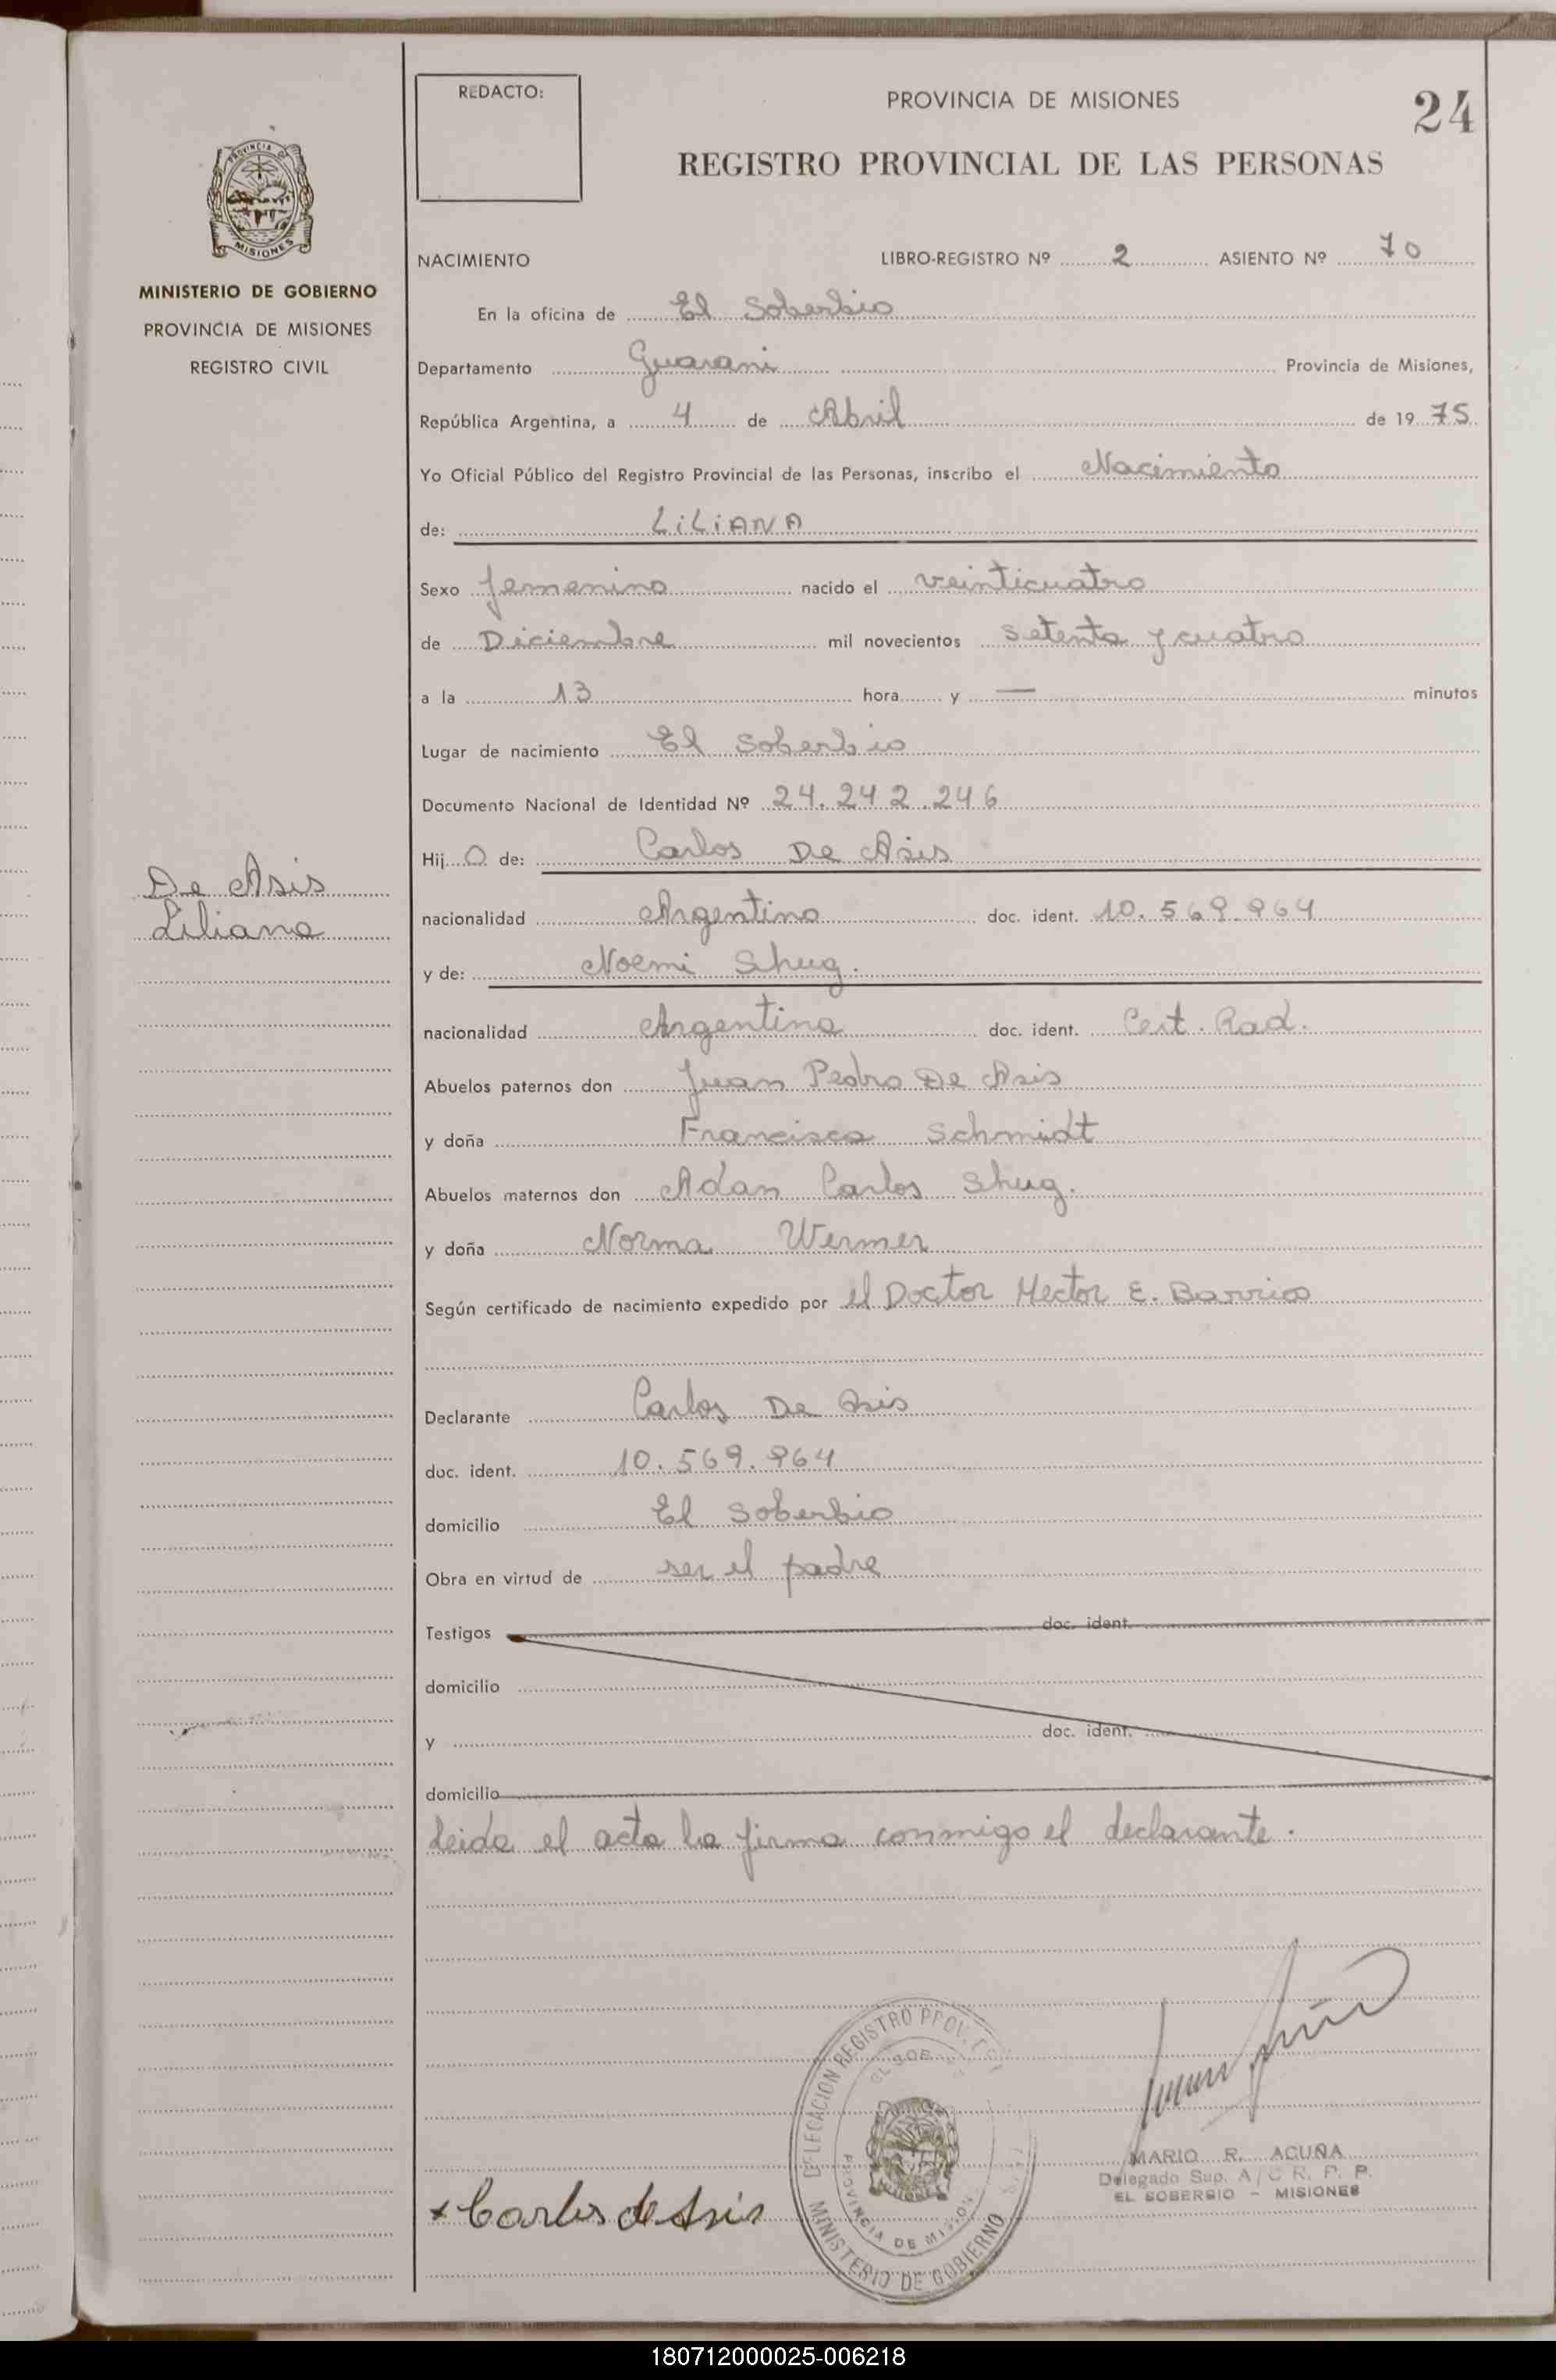 REDACTO:
PROVINCIA DE MISIONES
24
REGISTRO PROVINCIAL DE LAS PERSONAS
PROVINCIA DE
MISIONES
MINISTERIO DE GOBIERNO
PROVINCIA DE MISIONES
REGISTRO CIVIL
NACIMIENTO LIBRO-REGISTRO Nº 2 ASIENTO Nº 70
En la oficina de El Soberbio
Departamento Guarani Provincia de Misiones,
República Argentina, a 4 de Abril de 19 75
Yo Oficial Público del Registro Provincial de las Personas, inscribo el Nacimiento
de: LiLiANA
Sexo femenino nacido el veinticuatro
de Diciembre mil novecientos setenta y cuatro
a la 13 hora y — minutos
Lugar de nacimiento El Soberbio
Documento Nacional de Identidad Nº 24.242.246
Hij O de: Carlos De Asis
De Asis
Liliana
nacionalidad Argentino doc. ident. 10.569.964
y de: Noemi Shug.
nacionalidad Argentina doc. ident. Cert. Rad.
Abuelos paternos don Juan Pedro De Asis
y doña Francisca Schmidt
Abuelos maternos don Adan Carlos Shug.
y doña Norma Wermer
Según certificado de nacimiento expedido por el Doctor Hector E. Barrios
Declarante Carlos De Asis
doc. ident. 10.569.964
domicilio El Soberbio
Obra en virtud de ser el padre
Testigos doc. ident.
domicilio
y doc. ident.
domicilio
Leida el acta la firma conmigo el declarante.
DELEGACION REGISTRO PROV.
EL SOB
PROVINCIA DE MISION
MINISTERIO DE GOBIERNO
MARIO R. ACUÑA
Delegado Sup. A/C R. P. P.
EL SOBERBIO - MISIONES
x Carlos de Asis
180712000025-006218